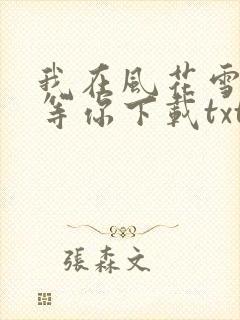 我在風花雪
等你下載txt
張森文